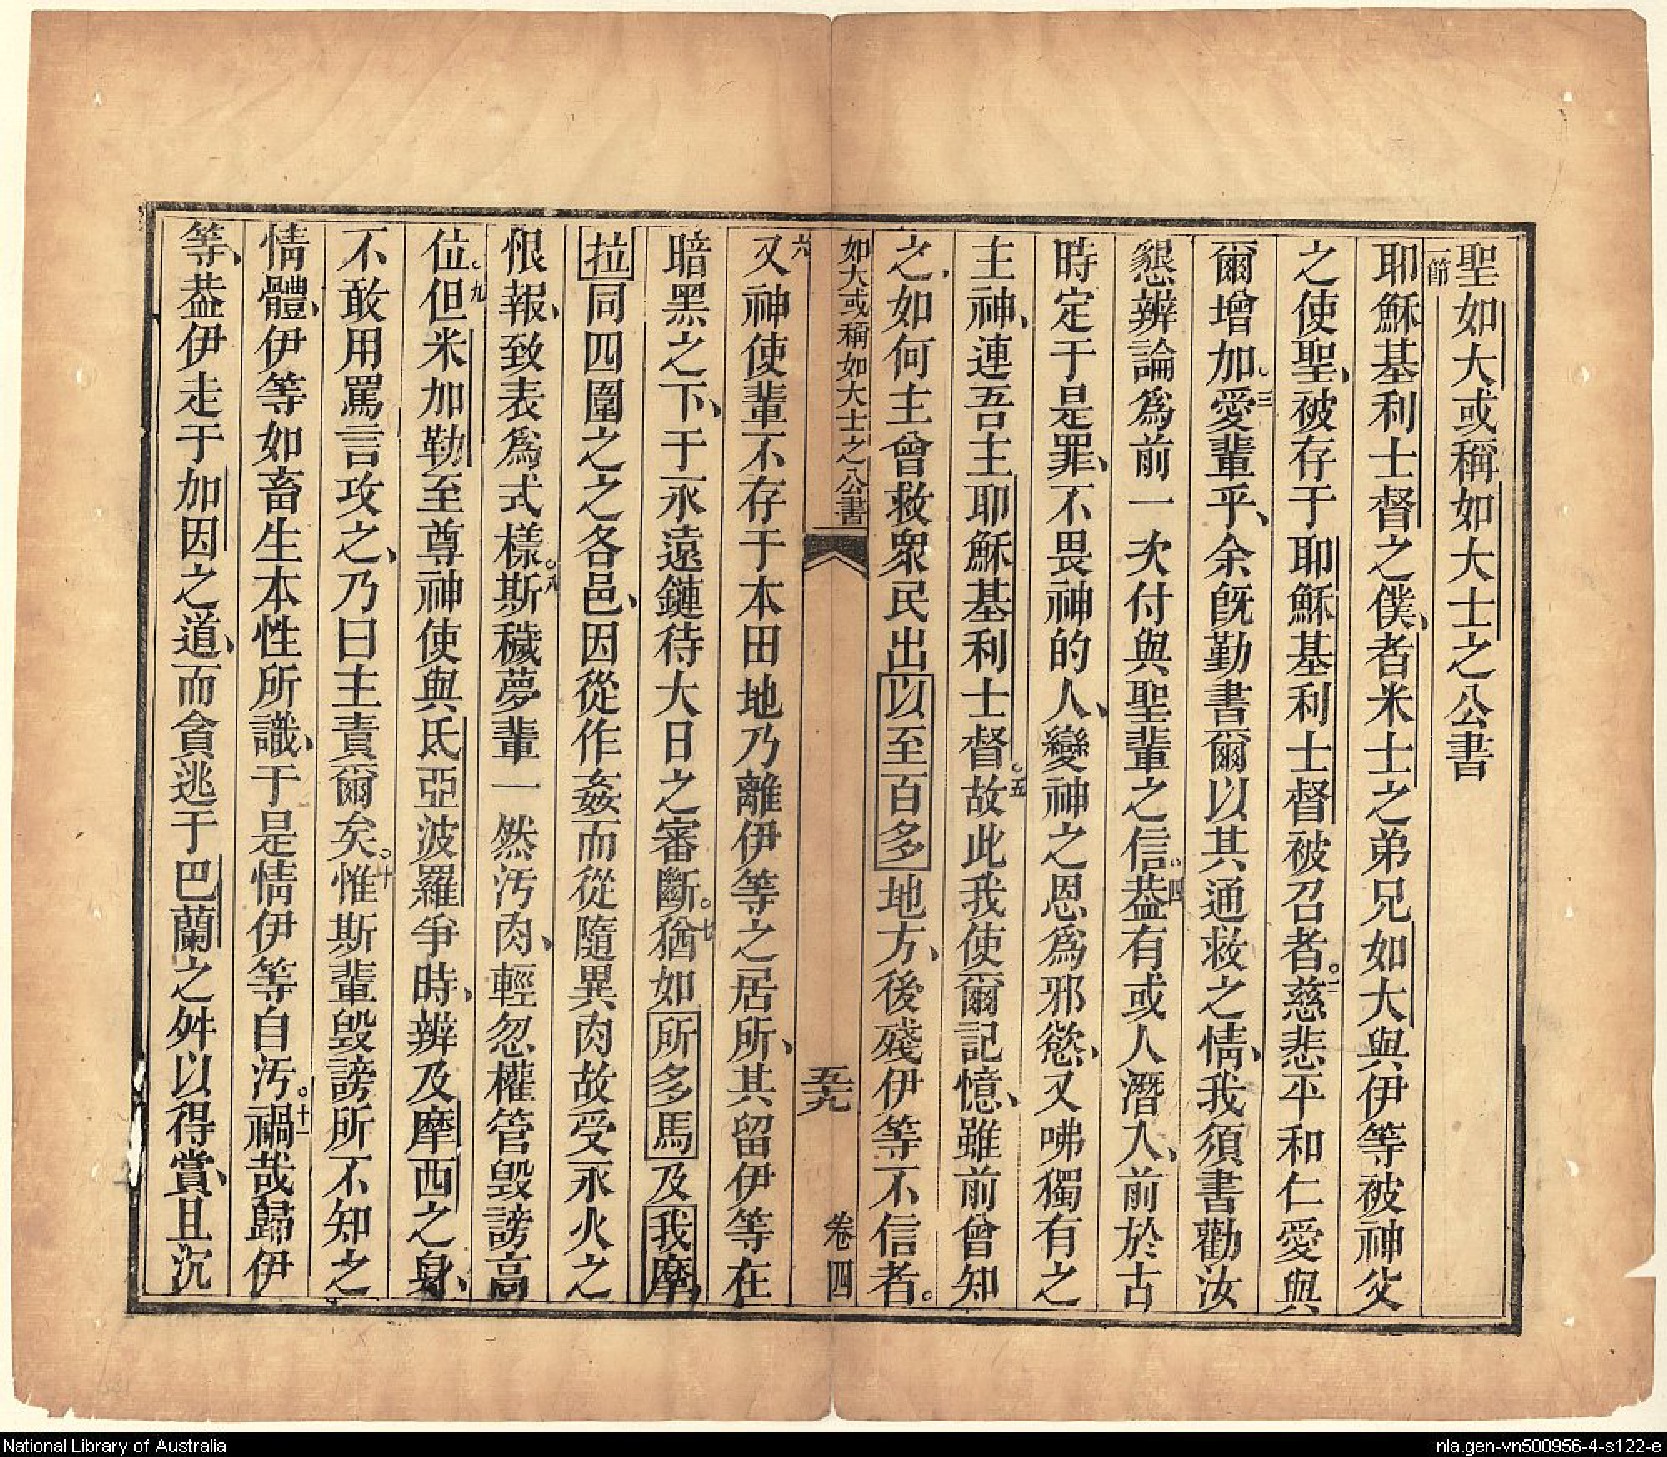 聖如大或稱如大士之公書
一節
耶穌基利士督之僕、者米士之弟兄如大與伊等被神父
之使聖、被存于耶穌基利士督被召者。二慈悲平和仁愛與
爾增加。三愛輩乎、余既勤書爾以其通救之情、我須書勸汝
懇辨論為前一次付與聖輩之信。四葢有或人潛入、前於古
時定于是罪、不畏神的人、變神之恩為邪慾、又咈獨有之
主神、連吾主耶穌基利士督。五故此我使爾記憶、雖前曾知
之、如何主曾救衆民出以至百多地方、後殘伊等不信者。
如大或稱如大士之公書
五十九
卷四
六又神使輩不存于本田地乃離伊等之居所、其留伊等在
暗黑之下、于永遠鏈待大日之審斷。七猶如所多馬及我摩
拉同四圍之之各邑、因從作姦而從隨異肉故受永火之
恨報、致表為式樣。八斯穢夢輩一然汚肉、輕忽權管毀謗高
位。九但米加勒至尊神使與氐亞波羅爭時、辨及摩西之身、
不敢用罵言攻之、乃曰主責爾矣。十惟斯輩毀謗所不知之。
情體、伊等如畜生本性所識、于是情伊等自汚。十一禍哉歸伊
等、葢伊走于加因之道、而貪逃于巴蘭之舛以得賞、且沉
National Library of Australia
nla.gen-vn500956-4-s122-e